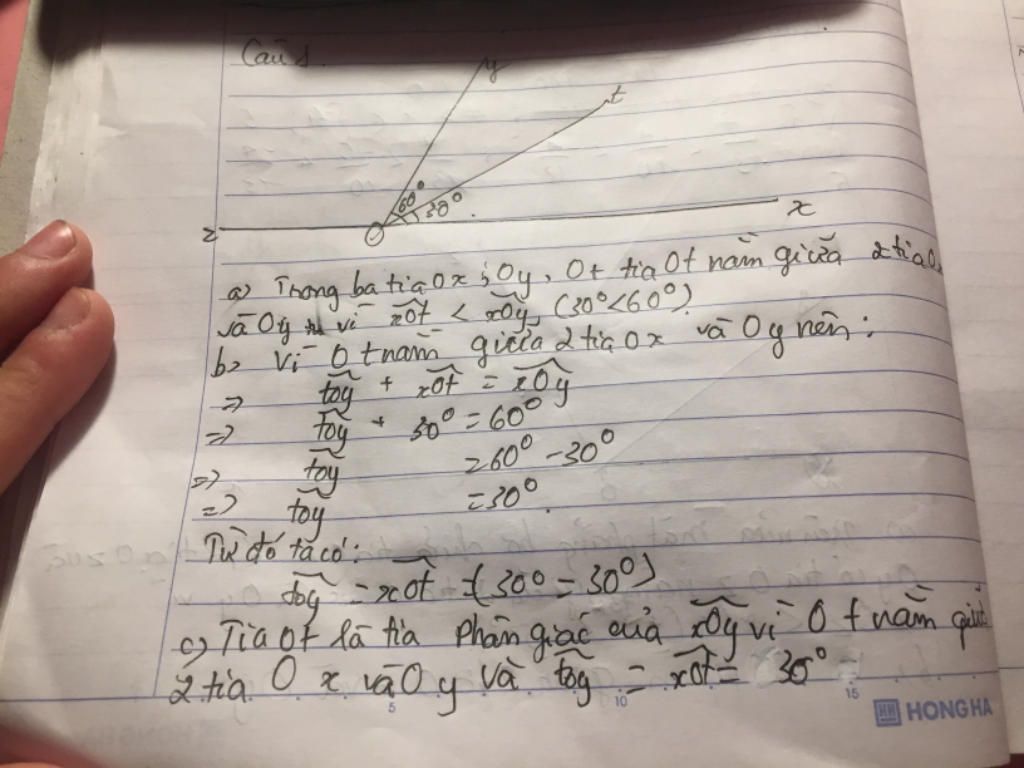 Câu 1.
y
t
60°
30°
z
O
x
a) Trong ba tia Ox; Oy, Ot tia Ot nằm giữa 2 tia Ox
và Oy vì xOt < xOy, (30°<60°).
b) Vì Ot nằm giữa 2 tia Ox và Oy nên:
=> tOy + xOt = xOy
=> tOy + 30° = 60°
=> tOy = 60° - 30°
=> tOy = 30°
Từ đó ta có:
tOy = xOt = (30° = 30°)
c) Tia Ot là tia phân giác của xOy vì Ot nằm giữa
2 tia Ox và Oy và tOy = xOt = 30°
5 10 15
HONG HA